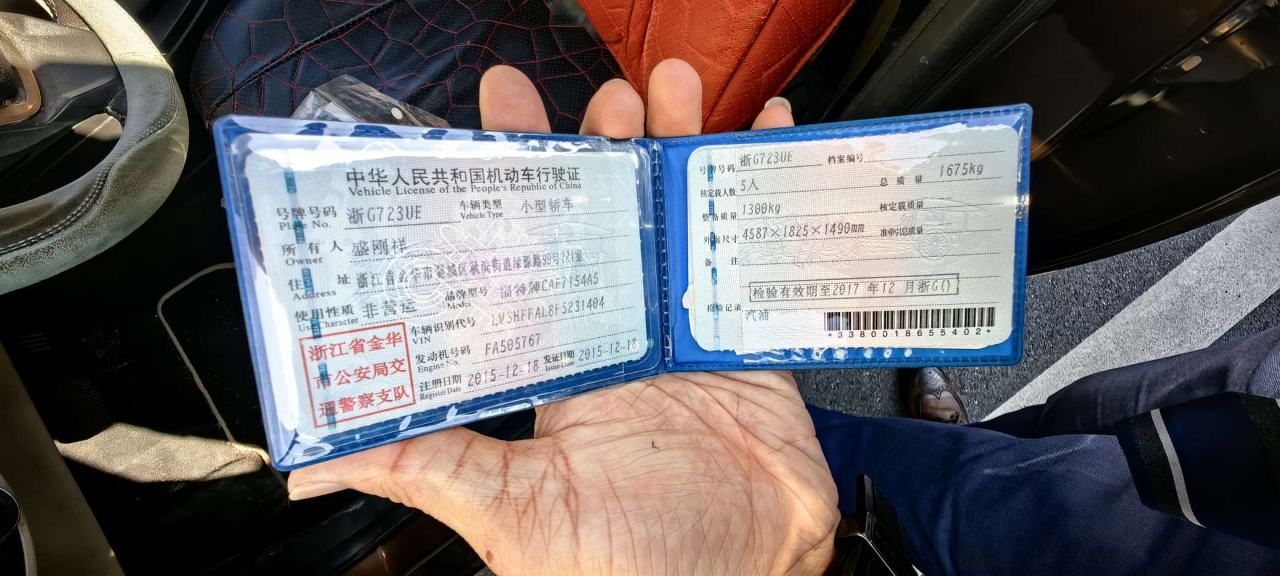 中华人民共和国机动车行驶证
Vehicle License of the People's Republic of China
号牌号码 浙G723UE 车辆类型 小型轿车
Plate No. Vehicle Type
所有人 盛刚祥
Owner
住址 浙江省金华市婺城区秋滨街道
Address
使用性质 非营运 品牌型号 福特牌CAF7154A5
Use Character Model
车辆识别代号 LVSHFFAL8FS231404
VIN
发动机号码 FA505767
Engine No.
注册日期 2015-12-18 发证日期 2015-12-18
Register Date Issue Date
浙江省金华
市公安局交
通警察支队
号牌号码 浙G723UE 档案编号
核定载人数 5人 总质量 1675kg
整备质量 1300kg 核定载质量
外廓尺寸 4587×1825×1490mm 准牵引总质量
备注
检验有效期至2017 年12 月浙G()
检验记录
汽油
*3380018655402*